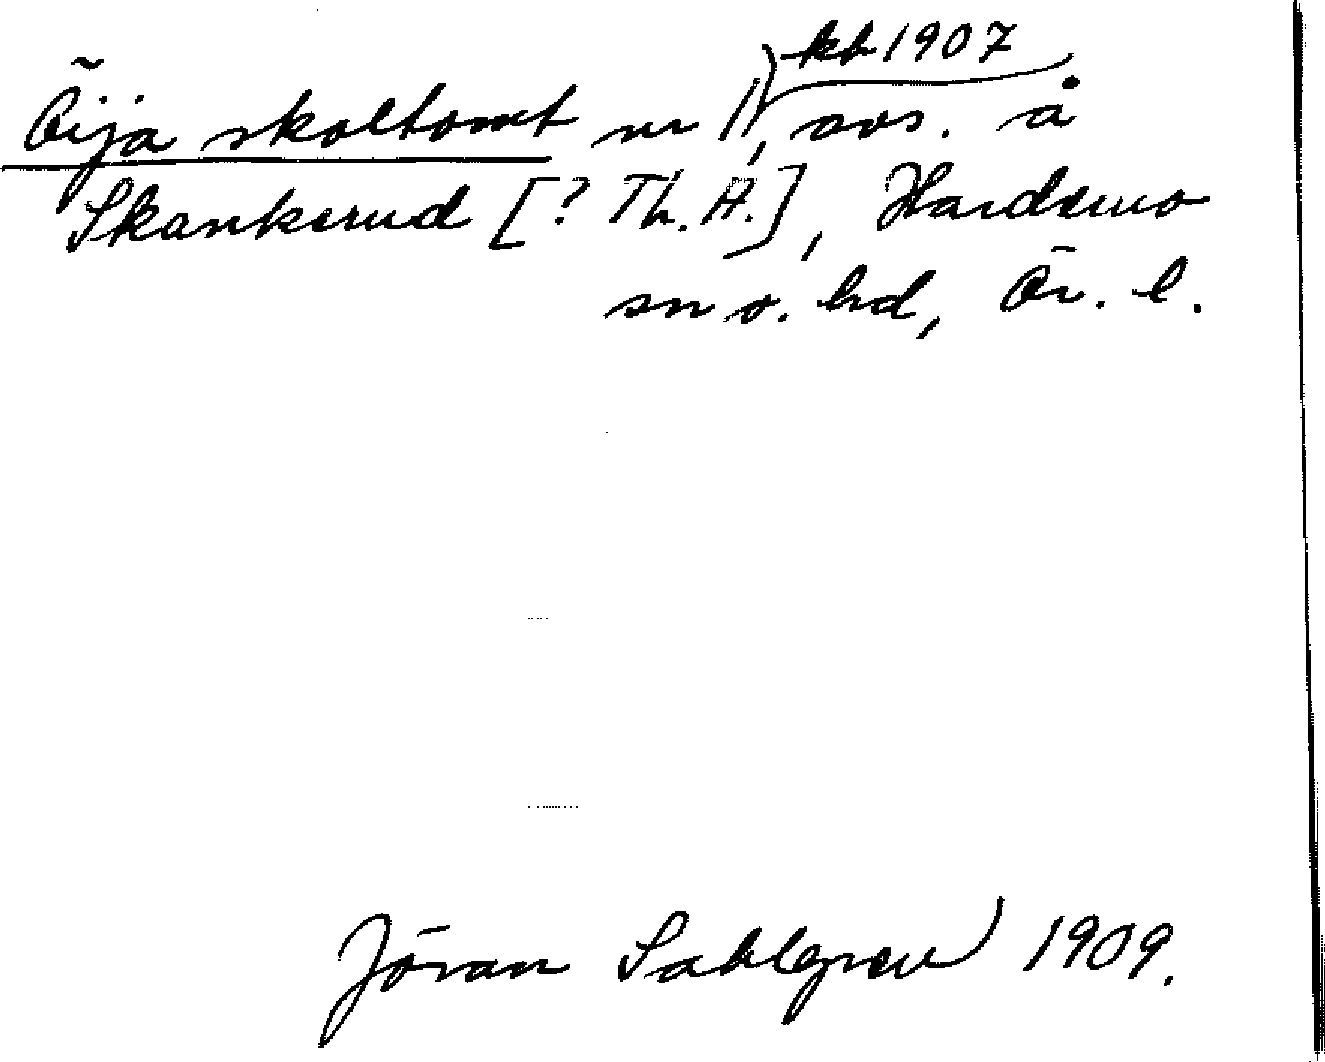 kb 1907
Öija skoltomt nr 1, avs. å
Skankerud [? Th. A.], Hardemo
sn o. hd, Ör. l.
Jöran Sahlgren 1909.